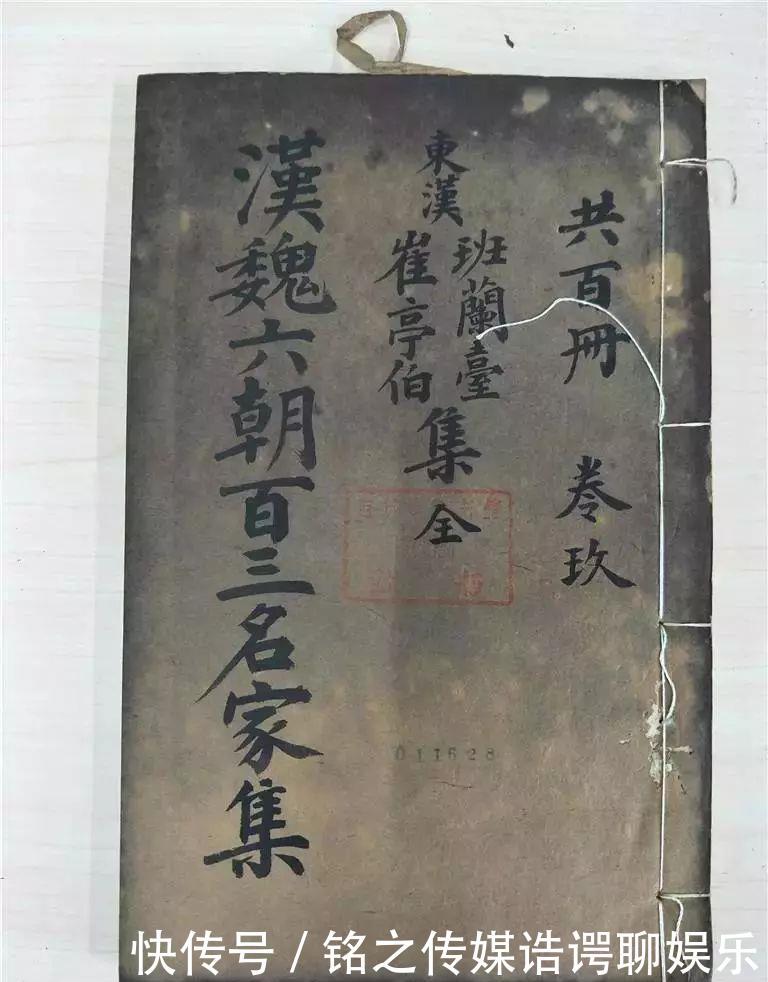 共百冊 卷玖
東漢
班蘭臺
崔亭伯
集全
漢魏六朝百三名家集
011628
快传号 / 铭之传媒诰谔聊娱乐